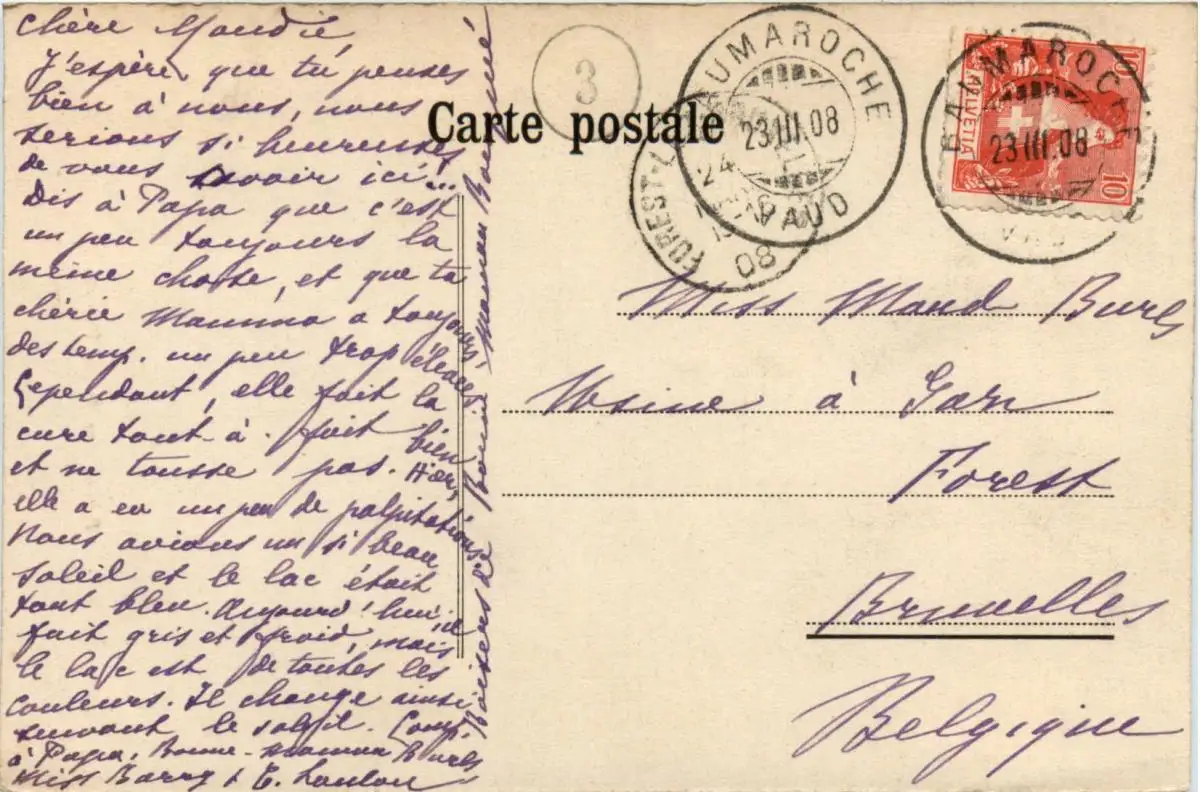 Chère Maudie,
J'espère que tu penses
bien à nous, nous
serions si heureuses
de vous avoir ici...
Dis à Papa que c'est
un peu toujours la
même chose, et que ta
chérie Mamma a toujours
des temp. un peu trop élevées
Cependant, elle fait la
cure tout-à-fait bien
et ne tousse pas. Hier,
elle a eu un peu de palpitations
Nous avions un si beau
soleil et le lac était
tout bleu. Aujourd'hui, il
fait gris et froid, mais
le lac est de toutes les
couleurs. Il change ainsi
suivant le soleil. Comp.
à Papa, Bonne-maman Burls
Miss Barry & T. Loulou
Baisers de Bonne maman
3
Carte postale
BAUMAROCHE
23 III. 08
VAUD
FOREST
24
08
BAUMAROCHE
23 III. 08
VAUD
10
HELVETIA
10
Miss Maud Burls
Usine à Gaz
Forest
Bruxelles
Belgique